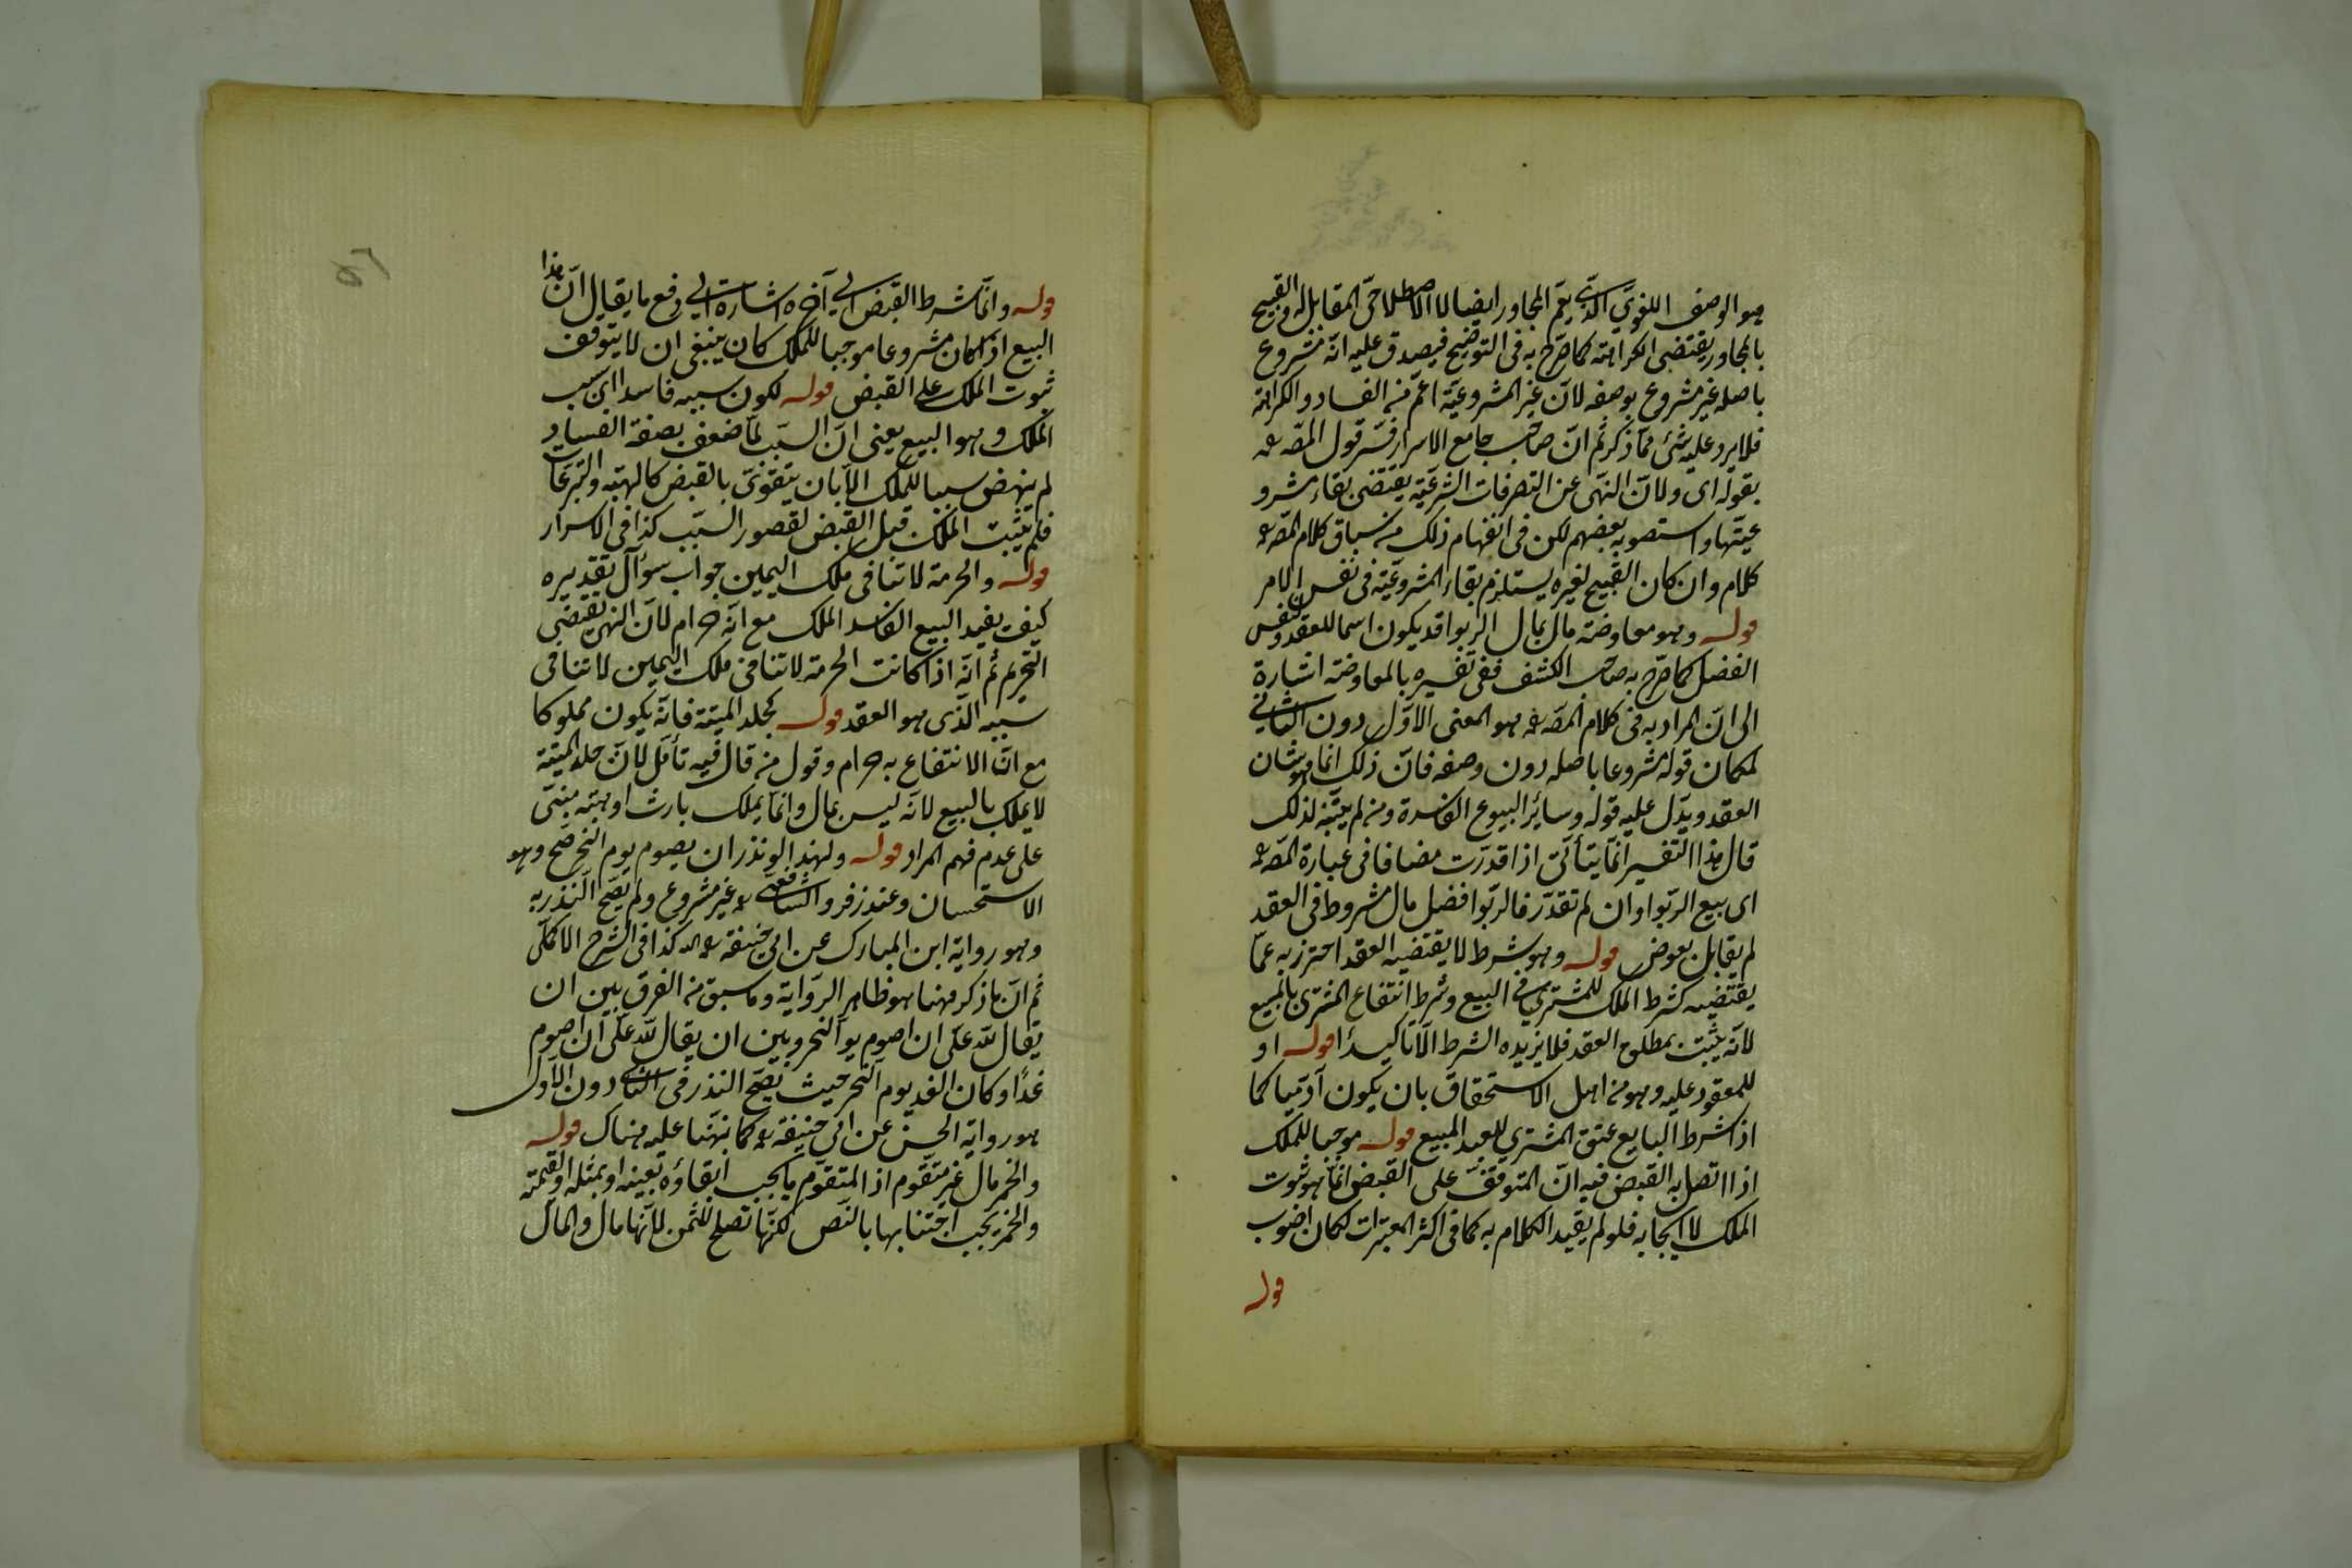 هو الوصف اللغوي الذي يعم المجاور ايضا لا الاصطلاحى المقابل له والقبيح
بالمجاور يقتضى الكراهة كما صرح به فى التوضيح فيصدق عليه انه مشروع
باصله غير مشروع بوصفه لان غير المشروعية اعم من الفساد والكراهة
فلا يرد عليه شئ مما ذكر ثم ان صاحب جامع الاسرار فسر قول المصه
بقوله اى ولان النهى عن التصرفات الشرعية يقتضى بقاء مشرو
عيتها واستصوبه بعضهم لكن فى انفهام ذلك من سياق كلام المصه
كلام وان كان القبيح لغيره يستلزم بقاء المشروعية فى نفس الامر
قوله وهو معاوضة مال بمال الربوا قد يكون اسما للعقد ولنفس
الفضل كما صرح به صاحب الكشف ففى تفسيره بالمعاوضة اشارة
الى ان المراد به فى كلام المصه هو المعنى الاول دون الثانى
لمكان قوله مشروعا باصله دون وصفه فان ذلك انما هو شان
العقد ويدل عليه قوله وسائر البيوع الفاسدة ومن لم يتنبه لذلك
قال هذا التفسير انما يتأتى اذا قدرت مضافا فى عبارة المصه
اى بيع الربوا وان لم تقدر فالربوا فضل مال مشروط فى العقد
لم يقابل بعوض قوله وهو شرط لا يقتضيه العقد احترز به عما
يقتضيه كشرط الملك للمشترى فى البيع وشرط انتفاع المشترى بالمبيع
لانه يثبت بمطلق العقد فلا يزيده الشرط الا تاكيدا قوله او
للمعقود عليه وهو من اهل الاستحقاق بان يكون آدميا كما
اذا شرط البايع عتق المشتري للعبد المبيع قوله موجبا للملك
اذا اتصل به القبض فيه ان المتوقف على القبض انما هو ثبوت
الملك لا ايجابه فلو لم يقيد الكلام به كما فى اكثر المعتبرات لكان اصوب
قوله
قوله وانما شرط القبض الى آخره اشارة الى دفع ما يقال ان هذا
البيع اذا كان مشروعا موجبا للملك كان ينبغى ان لا يتوقف
ثبوت الملك على القبض قوله لكون سببه فاسدا اى سبب
الملك وهو البيع يعنى ان السبب لما ضعف بصفة الفساد
لم ينهض سببا للملك الا بان يتقوى بالقبض كالهبة والتبرعات
فلم يثبت الملك قبل القبض لقصور السبب كذا فى الاسرار
قوله والحرمة لا تنافى ملك اليمين جواب سؤال تقديره
كيف يفيد البيع الفاسد الملك مع انه حرام لان النهى يقتضى
التحريم ثم انه اذا كانت الحرمة لا تنافى ملك اليمين لا تنافى
سببه الذى هو العقد قوله كجلد الميتة فانه يكون مملوكا
مع ان الانتفاع به حرام وقول من قال فيه تأمل لان جلد الميتة
لا يملك بالبيع لانه ليس بمال وانما يملك بارث او هبة مبنى
على عدم فهم المراد قوله ولهذا لو نذر ان يصوم يوم النحر صح وهو
الاستحسان وعند زفر والشافعى غير مشروع ولم يصح النذر به
وهو رواية ابن المبارك عن ابى حنيفة كذا فى الشرح الاكملى
ثم ان ما ذكر ههنا هو ظاهر الرواية وما سبق من الفرق بين ان
يقال لله على ان اصوم يوم النحر وبين ان يقال لله على ان اصوم
غدا وكان الغد يوم النحر حيث يصح النذر فى الثانى دون الاول
هو رواية الحسن عن ابى حنيفة كما نبهنا عليه هناك قوله
والخمر مال غير متقوم اذ المتقوم ما يجب ابقاؤه بعينه او بمثله او بقيمته
والخمر يجب اجتنابها بالنص لكنها تصلح للثمن لانها مال والمال